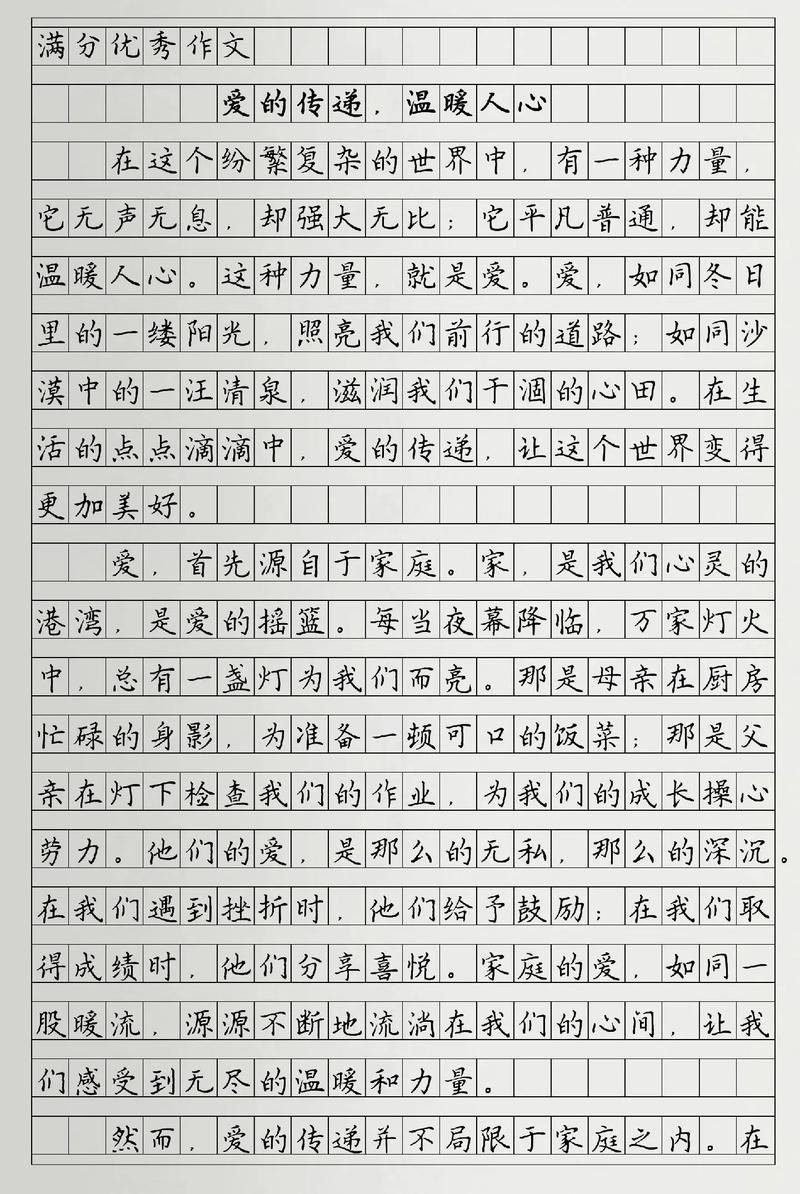 满分优秀作文
爱的传递，温暖人心
在这个纷繁复杂的世界中，有一种力量，
它无声无息，却强大无比；它平凡普通，却能
温暖人心。这种力量，就是爱。爱，如同冬日
里的一缕阳光，照亮我们前行的道路；如同沙
漠中的一汪清泉，滋润我们干涸的心田。在生
活的点点滴滴中，爱的传递，让这个世界变得
更加美好。
爱，首先源自于家庭。家，是我们心灵的
港湾，是爱的摇篮。每当夜幕降临，万家灯火
中，总有一盏灯为我们而亮。那是母亲在厨房
忙碌的身影，为准备一顿可口的饭菜；那是父
亲在灯下检查我们的作业，为我们的成长操心
劳力。他们的爱，是那么的无私，那么的深沉。
在我们遇到挫折时，他们给予鼓励；在我们取
得成绩时，他们分享喜悦。家庭的爱，如同一
股暖流，源源不断地流淌在我们的心间，让我
们感受到无尽的温暖和力量。
然而，爱的传递并不局限于家庭之内。在